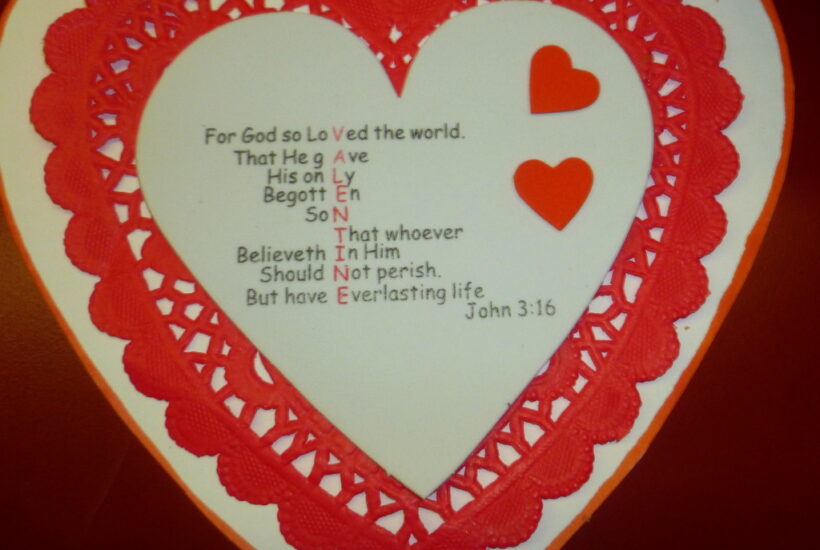 For God so LoVed the world.
That He g Ave
His on Ly
Begott En
So N
That whoever
Believeth In Him
Should Not perish.
But have Everlasting life
John 3:16